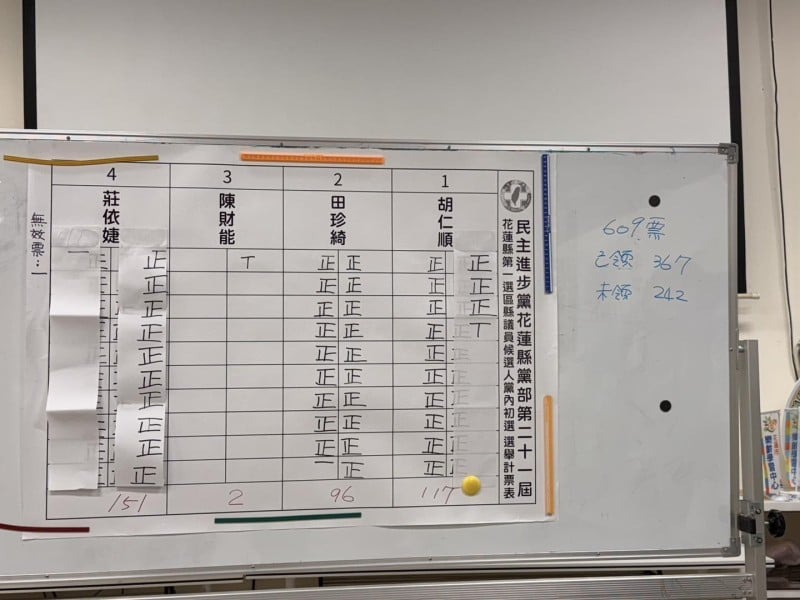 民主進步黨花蓮縣黨部第二十一屆
花蓮縣第一選區縣議員候選人黨內初選 選舉計票表
1
胡仁順
正正正丅
正正正正正正正正正正
117
2
田珍綺
正正正正正正正正正正
正正正正正正正正正一
96
3
陳財能
丅
2
4
莊依婕
正正正正正正正正正正
一
151
無效票：一
609票
已領 367
未領 242